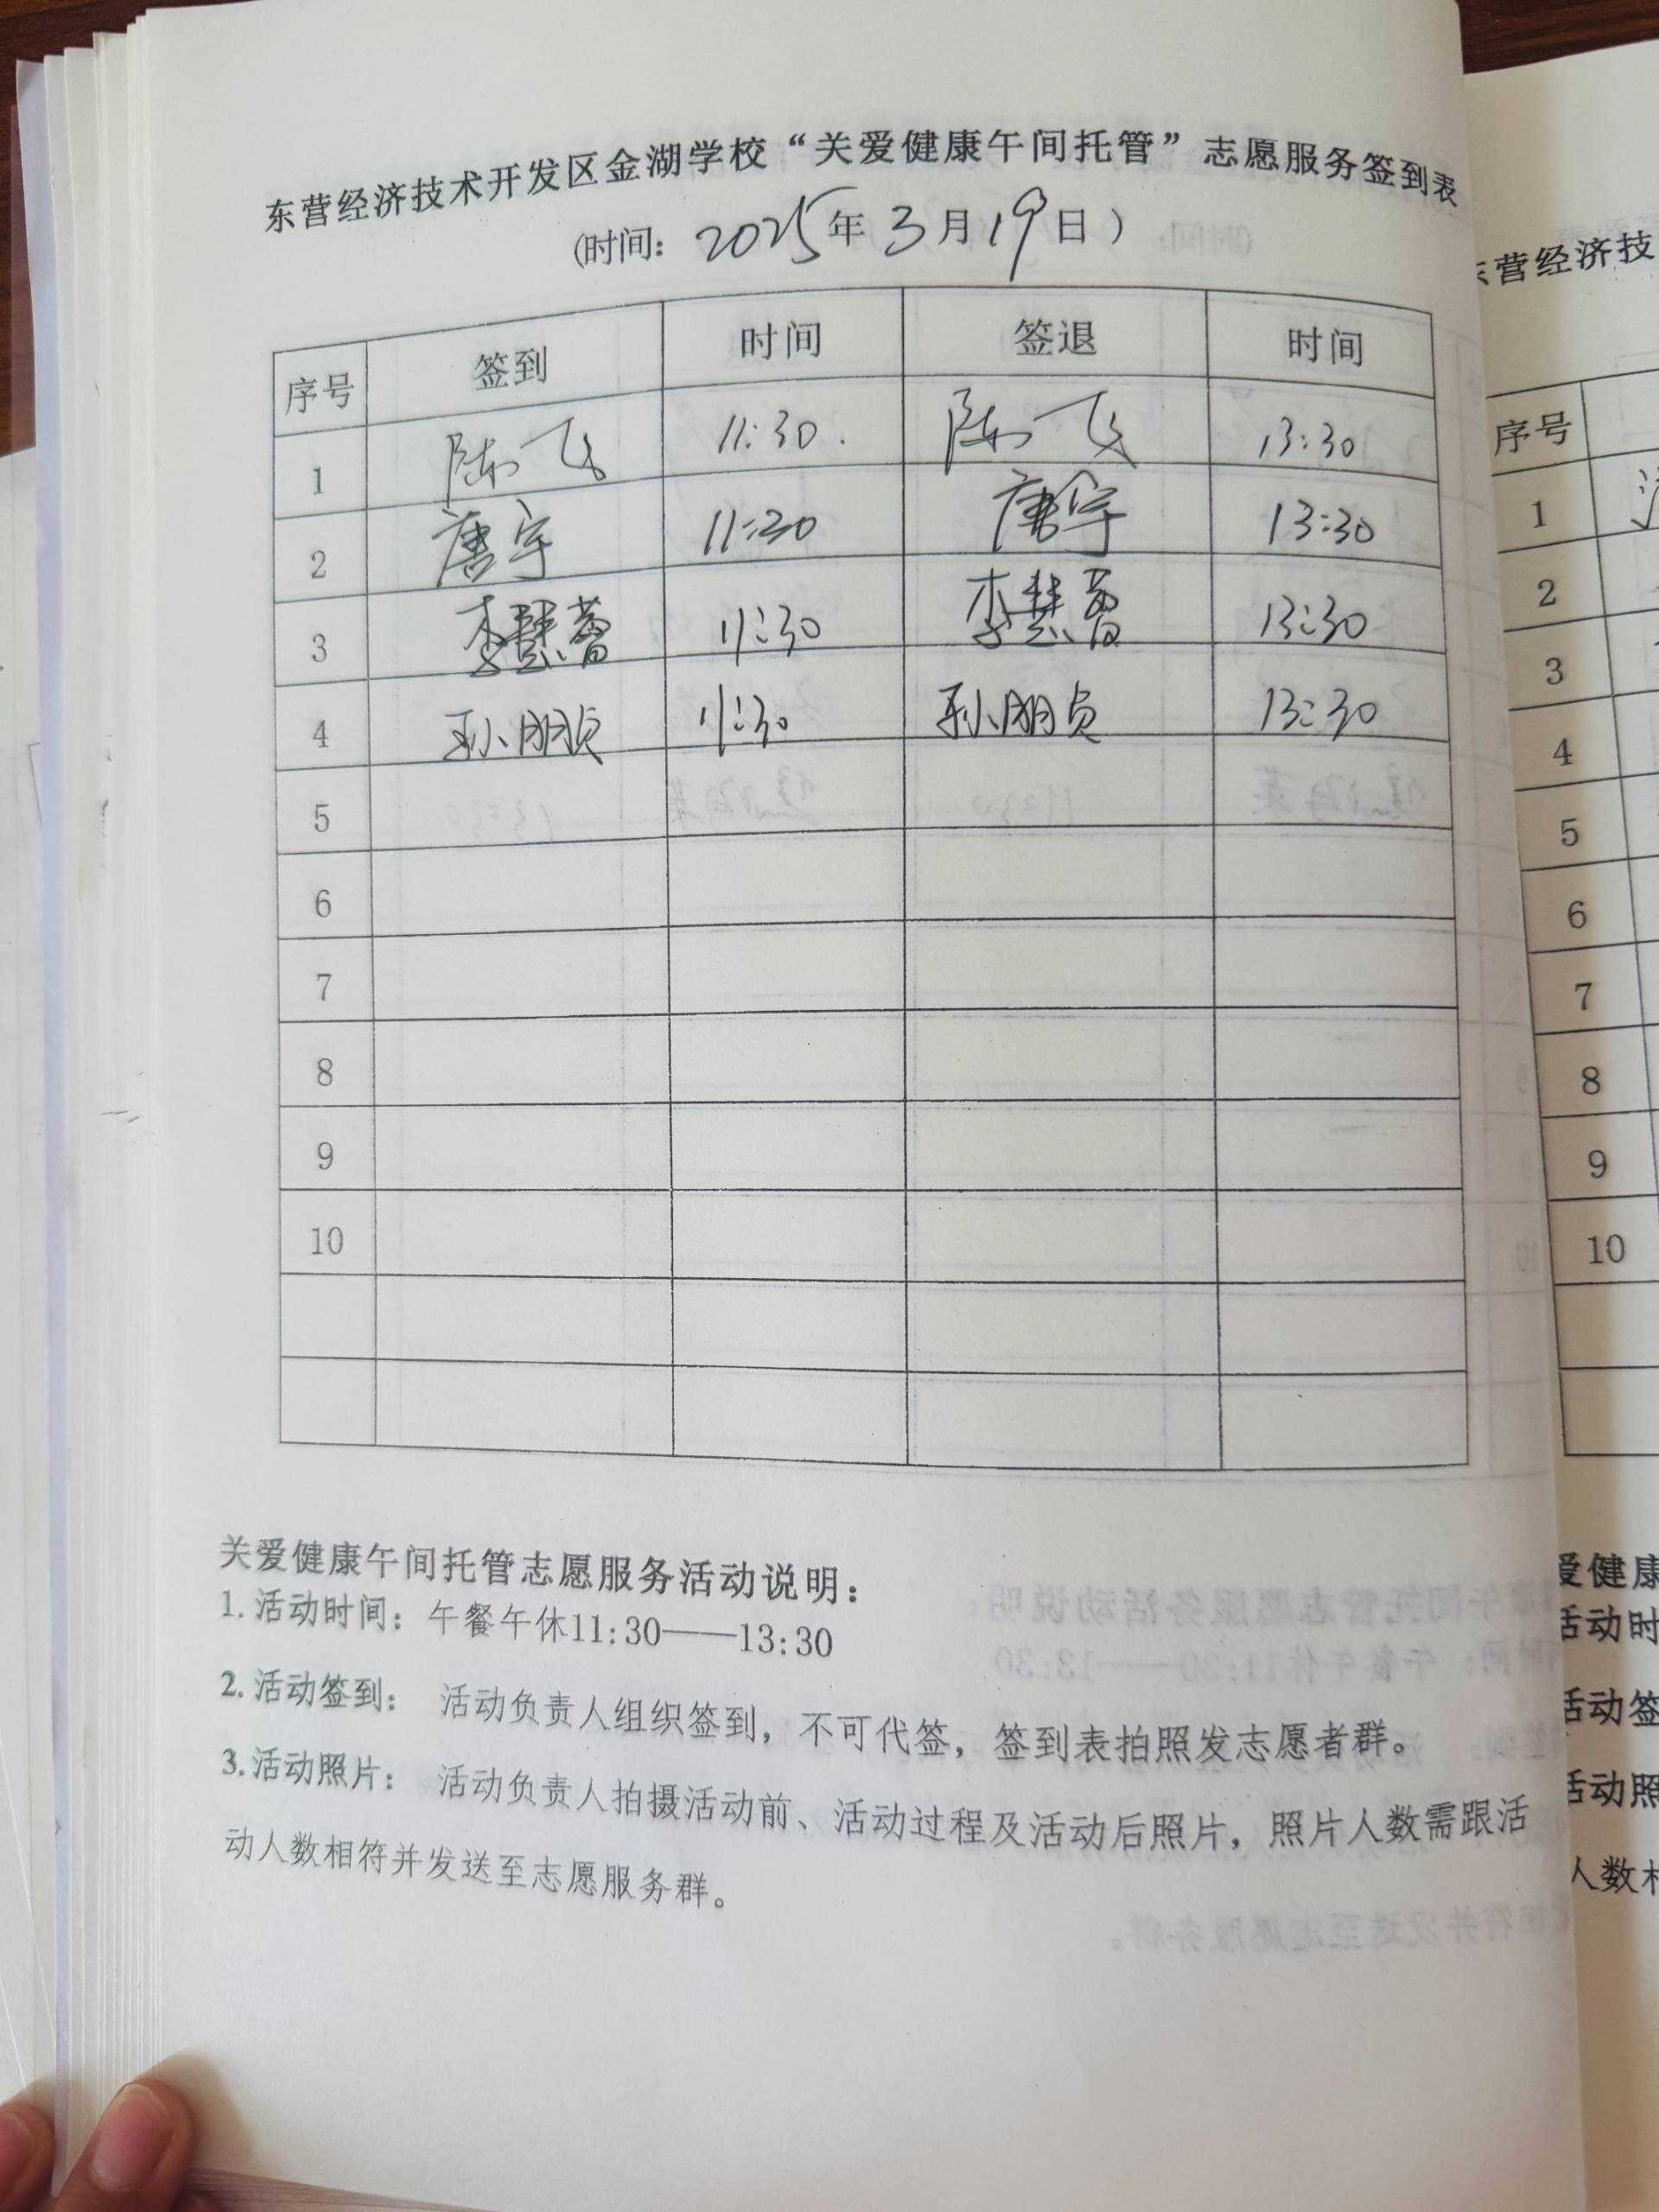 东营经济技术开发区金湖学校“关爱健康午间托管”志愿服务签到表
(时间：2025年3月19日)
序号 签到 时间 签退 时间
1 陈飞 11:30. 陈飞 13:30
2 唐宇 11:30 唐宇 13:30
3 李慧蕾 11:30 李慧蕾 13:30
4 孙朋贞 11:30 孙朋贞 13:30
5
6
7
8
9
10
关爱健康午间托管志愿服务活动说明：
1.活动时间：午餐午休11:30——13:30
2.活动签到： 活动负责人组织签到，不可代签，签到表拍照发志愿者群。
3.活动照片： 活动负责人拍摄活动前、活动过程及活动后照片，照片人数需跟活
动人数相符并发送至志愿服务群。
营经济技
序号
1
2
3
4
5
6
7
8
9
10
爱健康
活动时
活动签
活动照
人数相